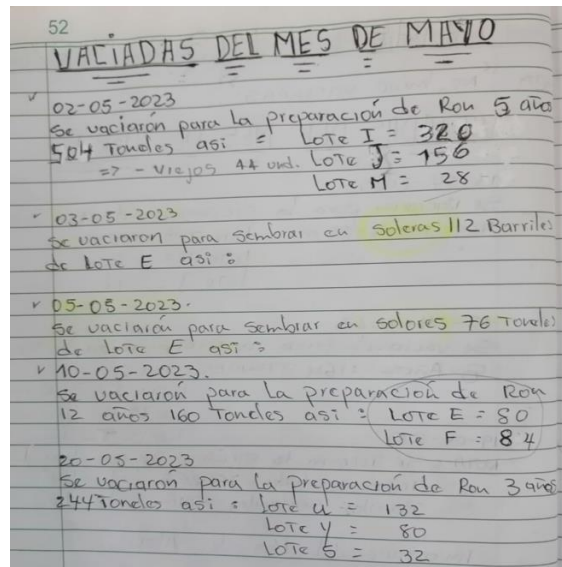 52
VACIADAS DEL MES DE MAYO
02-05-2023
Se vaciaron para La preparación de Ron 5 años
504 Toneles asi = LoTe I = 320
=> - Viejos 44 und. LoTe J = 156
LoTe M = 28
03-05-2023
Se vaciaron para sembrar en Soleras 112 Barriles
de LoTe E asi :
05-05-2023.
Se vaciarón para sembrar en solores 76 Toneles
de LoTe E asi :
10-05-2023.
Se vaciarón para La preparación de Ron
12 años 160 Toneles asi : LoTe E = 80
LoTe F = 84
20-05-2023
Se vaciaron para la preparación de Ron 3 años
244 Toneles asi : lote U = 132
LoTe Y = 80
LoTe 5 = 32